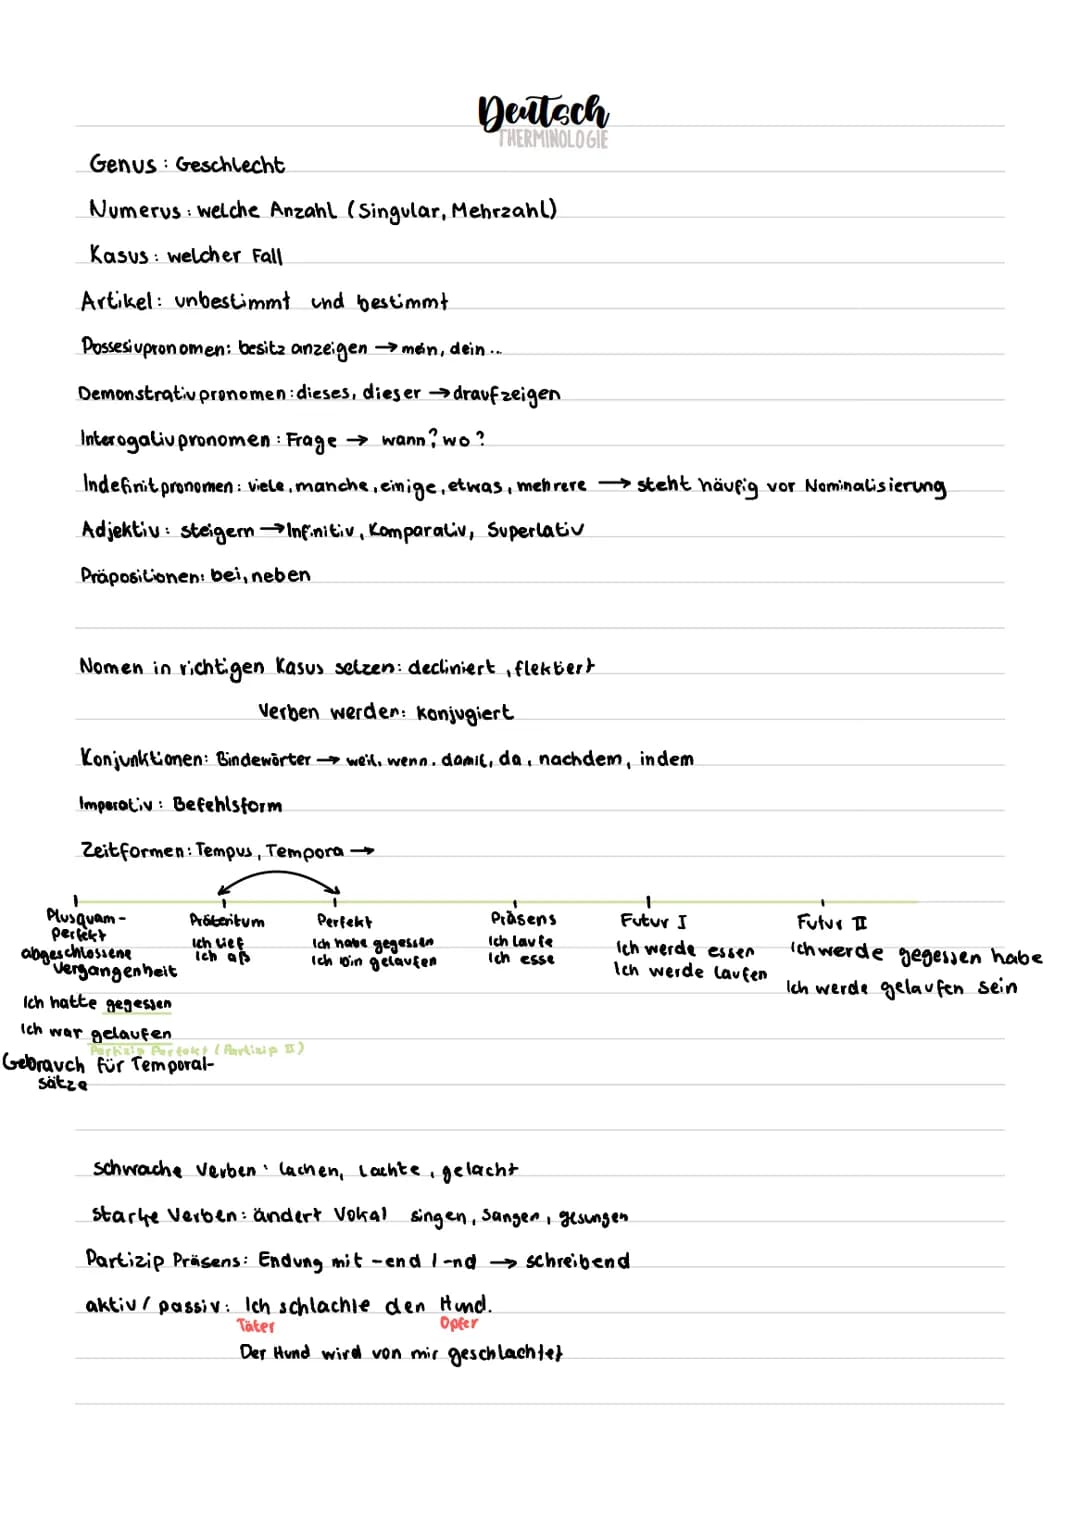 Deutsch
THERMINOLOGIE
Genus: Geschlecht
Numerus: welche Anzahl (Singular, Mehrzahl)
Kasus: welcher Fall
Artikel: unbestimmt und bestimmt
Possesivpronomen: besitz anzeigen → mein, dein ..
Demonstrativpronomen: dieses, dieser → draufzeigen
Interogativpronomen: Frage → wann? wo?
Indefinitpronomen: viele, manche, einige, etwas, mehrere → steht häufig vor Nominalisierung
Adjektiv: steigern → Infinitiv, Komparativ, Superlativ
Präpositionen: bei, neben
Nomen in richtigen Kasus setzen: decliniert, flektiert
Verben werden: konjugiert
Konjunktionen: Bindewörter → weil, wenn, damit, da, nachdem, indem
Imperativ: Befehlsform
Zeitformen: Tempus, Tempora →
Plusquam-
perfekt
abgeschlossene
Vergangenheit
Ich hatte gegessen
Ich war gelaufen
Partizip Perfekt (Partizip II)
Gebrauch für Temporal-
sätze
Präteritum
Ich lief
Ich aß
Perfekt
Ich habe gegessen
Ich bin gelaufen
Präsens
Ich laufe
Ich esse
Futur I
Ich werde essen
Ich werde laufen
Futur II
Ich werde gegessen habe
Ich werde gelaufen sein
schwache Verben: lachen, lachte, gelacht
starke Verben: ändert Vokal singen, sangen, gesungen
Partizip Präsens: Endung mit -end / -nd → schreibend
aktiv / passiv: Ich schlachte den Hund.
Täter Opfer
Der Hund wird von mir geschlachtet